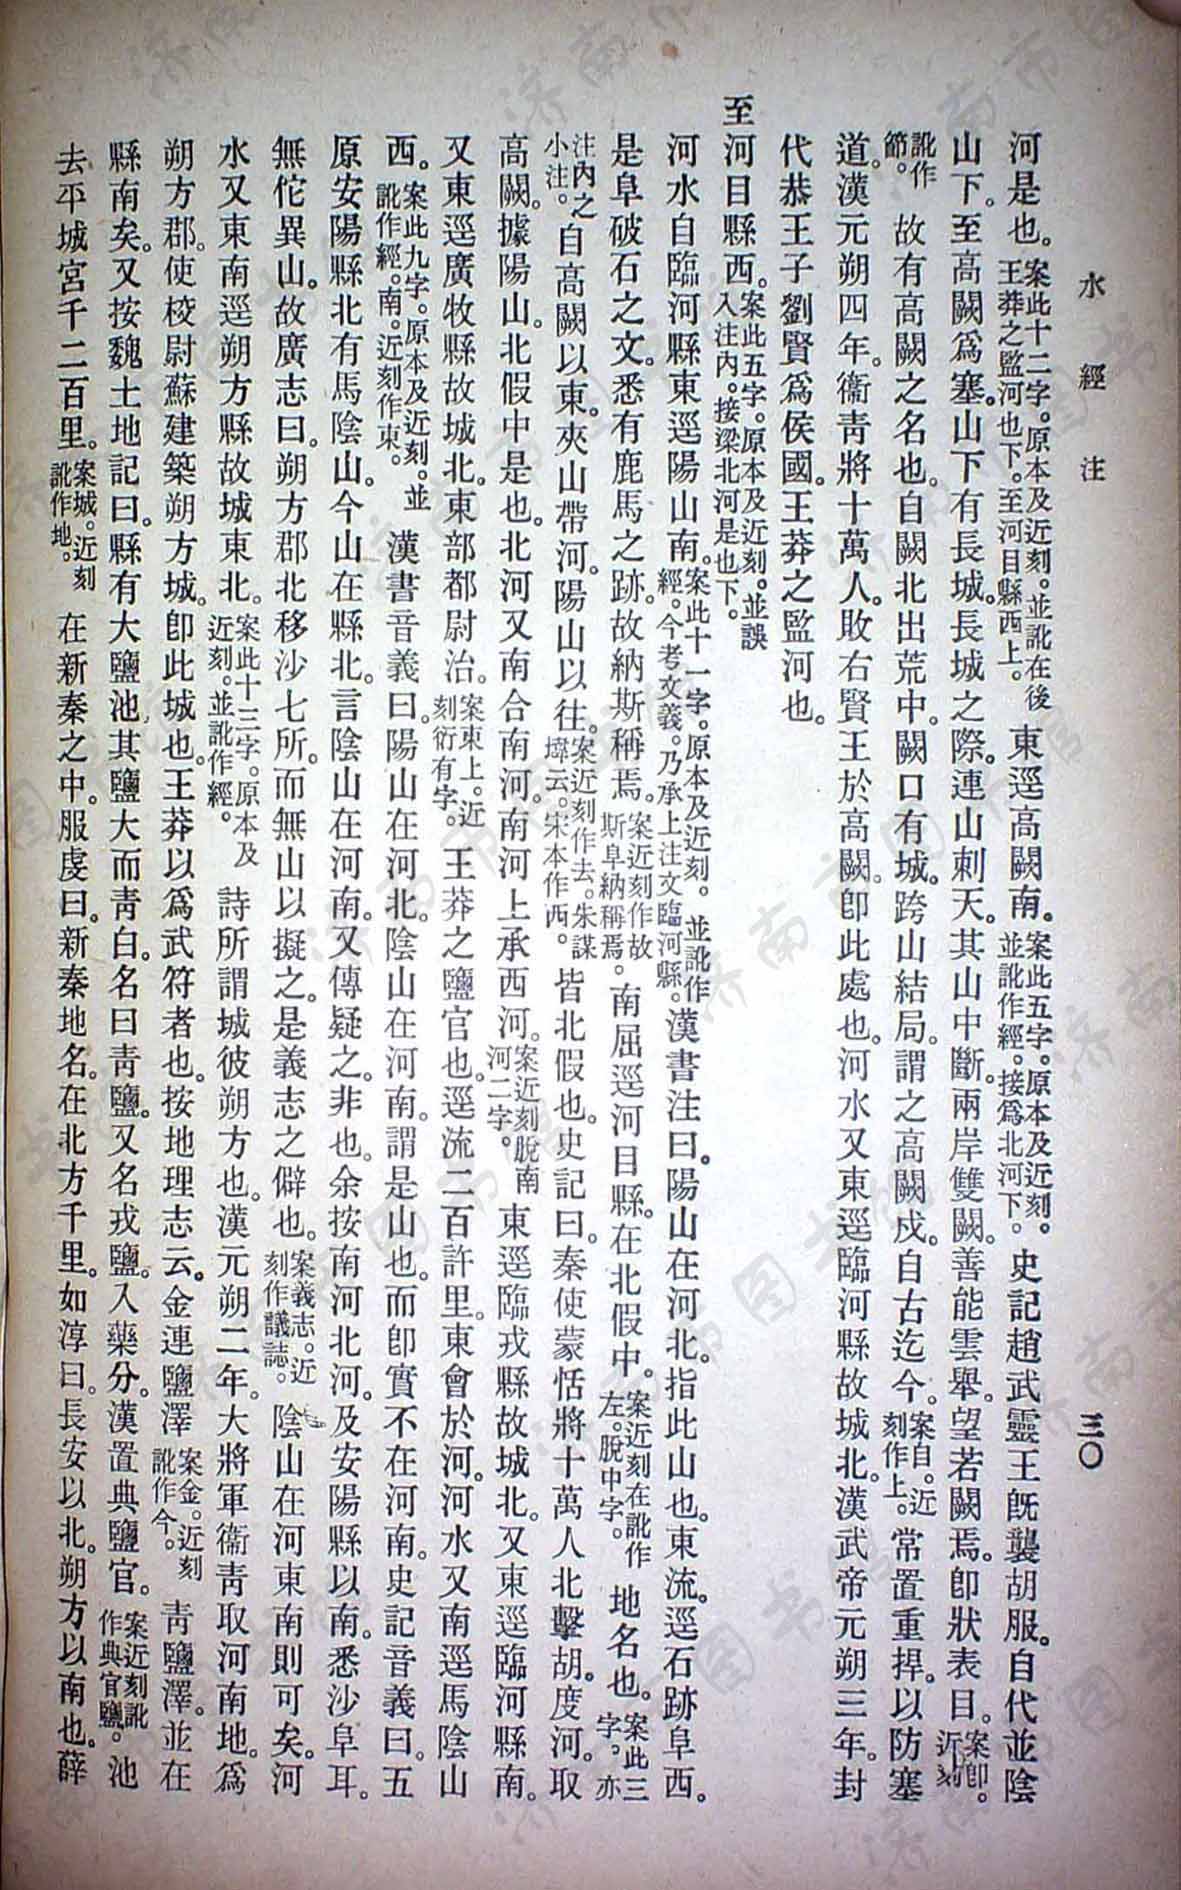 水經注
三〇
河是也。案此十二字。原本及近刻。並訛在後王莽之監河也下。至河目縣西上。東逕高闕南。案此五字。原本及近刻。並訛作經。接爲北河下。史記趙武靈王旣襲胡服。自代並陰
山下。至高闕爲塞。山下有長城。長城之際。連山刺天。其山中斷。兩岸雙闕。善能雲舉。望若闕焉。卽狀表目。案卽。近刻
訛作節。故有高闕之名也。自闕北出荒中。闕口有城。跨山結局。謂之高闕戍。自古迄今。案自。近刻作上。常置重捍。以防塞
道。漢元朔四年。衞靑將十萬人。敗右賢王於高闕。卽此處也。河水又東逕臨河縣故城北。漢武帝元朔三年。封
代恭王子劉賢爲侯國。王莽之監河也。
至河目縣西。案此五字。原本及近刻。並誤入注內。接梁北河是也下。
河水自臨河縣東逕陽山南。案此十一字。原本及近刻。並訛作經。今考文義。乃承上注文臨河縣。漢書注曰。陽山在河北。指此山也。東流。逕石跡阜西。
是阜破石之文。悉有鹿馬之跡。故納斯稱焉。案近刻作故斯阜納稱焉。南屈逕河目縣。在北假中。案近刻在訛作左。脫中字。地名也。案此三字。亦
注內之小注。自高闕以東。夾山帶河。陽山以往。案近刻作去。朱謀㙔云。宋本作西。皆北假也。史記曰。秦使蒙恬將十萬人北擊胡。度河。取
高闕。據陽山。北假中是也。北河又南合南河。南河上承西河。案近刻脫南河二字。東逕臨戎縣故城北。又東逕臨河縣南。
又東逕廣牧縣故城北。東部都尉治。案東上。近刻衍有字。王莽之鹽官也。逕流二百許里。東會於河。河水又南逕馬陰山
西。案此九字。原本及近刻。並訛作經。南。近刻作東。漢書音義曰。陽山在河北。陰山在河南。謂是山也。而卽實不在河南。史記音義曰。五
原安陽縣北有馬陰山。今山在縣北。言陰山在河南。又傳疑之。非也。余按南河北河。及安陽縣以南。悉沙阜耳。
無佗異山。故廣志曰。朔方郡北移沙七所。而無山以擬之。是義志之僻也。案義志。近刻作議誌。陰山在河東南則可矣。河
水又東南逕朔方縣故城東北。案此十三字。原本及近刻。並訛作經。詩所謂城彼朔方也。漢元朔二年。大將軍衞靑取河南地。爲
朔方郡。使校尉蘇建築朔方城。卽此城也。王莽以爲武符者也。按地理志云。金連鹽澤案金。近刻訛作今。靑鹽澤。並在
縣南矣。又按魏土地記曰。縣有大鹽池。其鹽大而靑白。名曰靑鹽。又名戎鹽。入藥分。漢置典鹽官。案近刻訛作典官鹽。池
去平城宮千二百里。案城。近刻訛作地。在新秦之中。服虔曰。新秦地名。在北方千里。如淳曰。長安以北。朔方以南也。薛